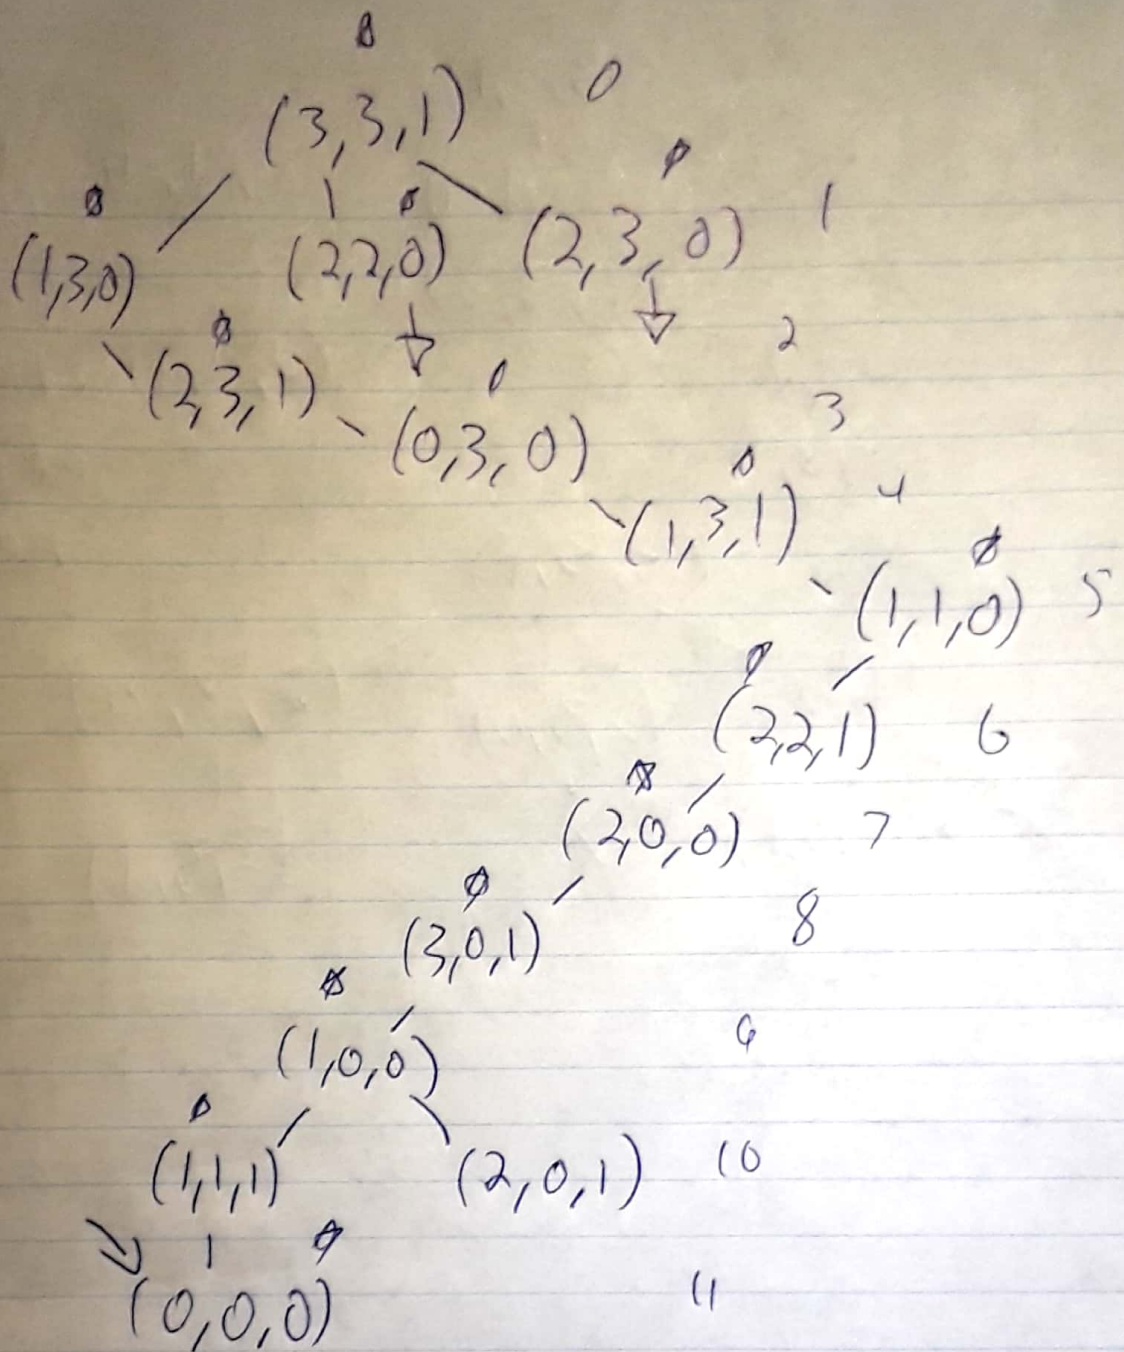 (3,3,1) 0
(1,3,0) (2,2,0) (2,3,0) 1
2
(2,3,1)
(0,3,0) 3
(1,3,1) 4
(1,1,0) 5
(2,2,1) 6
(2,0,0) 7
(3,0,1) 8
(1,0,0) 9
(1,1,1) (2,0,1) 10
(0,0,0) 11